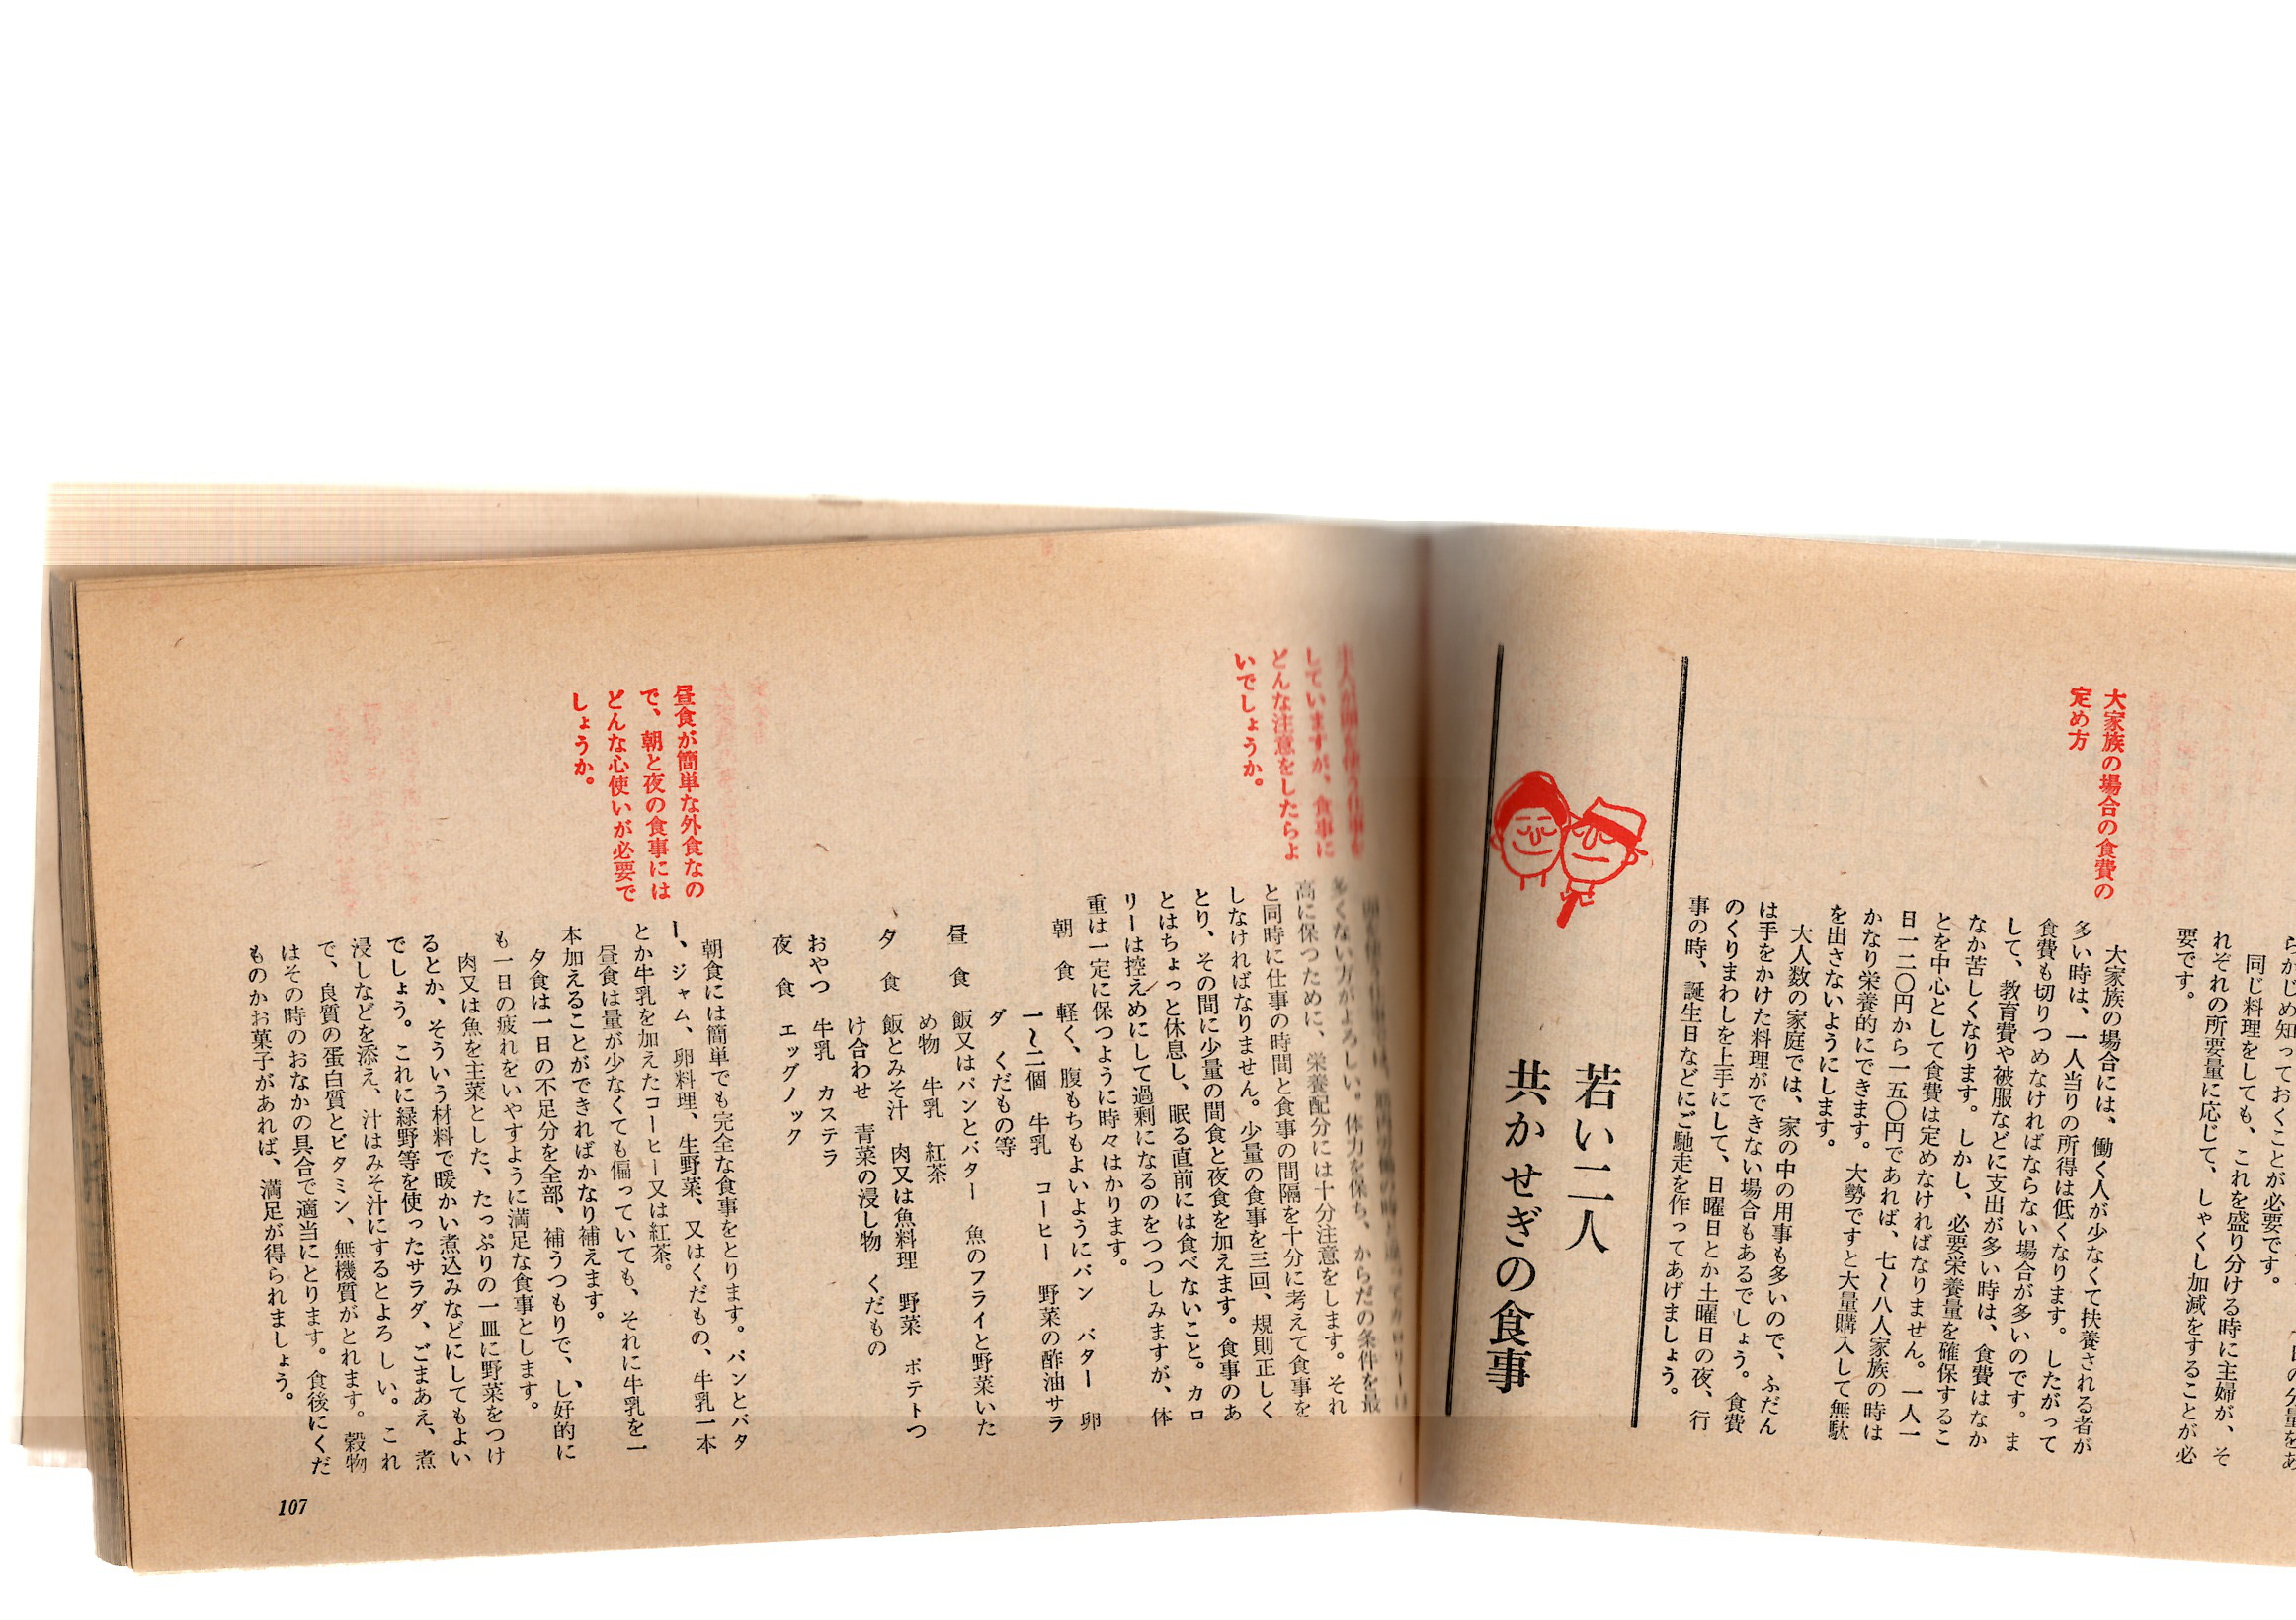 らかじめ知っておくことが必要です。
同じ料理をしても、これを盛り分ける時に主婦が、そ
れぞれの所要量に応じて、しゃくし加減をすることが必
要です。
大家族の場合の食費の
定め方
大家族の場合には、働く人が少なくて扶養される者が
多い時は、一人当りの所得は低くなります。したがって
食費も切りつめなければならない場合が多いのです。ま
して、教育費や被服などに支出が多い時は、食費はなか
なか苦しくなります。しかし、必要栄養量を確保するこ
とを中心として食費は定めなければなりません。一人一
日一二〇円から一五〇円であれば、七〜八人家族の時は
かなり栄養的にできます。大勢ですと大量購入して無駄
を出さないようにします。
大人数の家庭では、家の中の用事も多いので、ふだん
は手をかけた料理ができない場合もあるでしょう。食費
のくりまわしを上手にして、日曜日とか土曜日の夜、行
事の時、誕生日などにご馳走を作ってあげましょう。
若い二人
共かせぎの食事
していますが、食事に
どんな注意をしたらよ
いでしょうか。
多くない方がよろしい。体力を保ち、からだの条件を最
高に保つために、栄養配分には十分注意をします。それ
と同時に仕事の時間と食事の間隔を十分に考えて食事を
しなければなりません。少量の食事を三回、規則正しく
とり、その間に少量の間食と夜食を加えます。食事のあ
とはちょっと休息し、眠る直前には食べないこと。カロ
リーは控えめにして過剰になるのをつつしみますが、体
重は一定に保つように時々はかります。
朝　食　軽く、腹もちもよいようにパン　バター　卵
一〜二個　牛乳　コーヒー　野菜の酢油サラ
ダ　くだもの等
昼　食　飯又はパンとバター　魚のフライと野菜いた
め物　牛乳　紅茶
夕　食　飯とみそ汁　肉又は魚料理　野菜　ポテトつ
け合わせ　青菜の浸し物　くだもの
おやつ　牛乳　カステラ
夜　食　エッグノック
昼食が簡単な外食なの
で、朝と夜の食事には
どんな心使いが必要で
しょうか。
朝食には簡単でも完全な食事をとります。パンとバタ
ー、ジャム、卵料理、生野菜、又はくだもの、牛乳一本
とか牛乳を加えたコーヒー又は紅茶。
昼食は量が少なくても偏っていても、それに牛乳を一
本加えることができればかなり補えます。
夕食は一日の不足分を全部、補うつもりで、し好的に
も一日の疲れをいやすように満足な食事とします。
肉又は魚を主菜とした、たっぷりの一皿に野菜をつけ
るとか、そういう材料で暖かい煮込みなどにしてもよい
でしょう。これに緑野等を使ったサラダ、ごまあえ、煮
浸しなどを添え、汁はみそ汁にするとよろしい。これ
で、良質の蛋白質とビタミン、無機質がとれます。穀物
はその時のおなかの具合で適当にとります。食後にくだ
ものかお菓子があれば、満足が得られましょう。
107